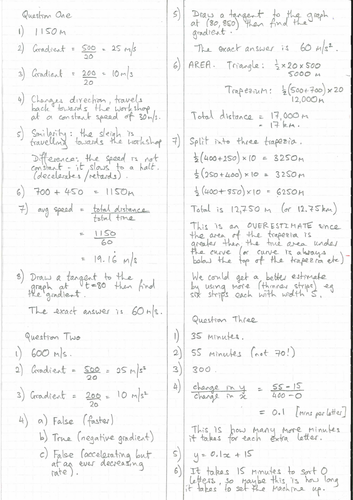 Question One
1) 1150 m
2) Gradient = 500/20 = 25 m/s
3) Gradient = 200/20 = 10 m/s
4) Changes direction, travels
back towards the workshop
at a constant speed of 30 m/s.
5) Similarity: the sleigh is
travelling towards the workshop
Difference: the speed is not
constant - it slows to a halt.
(decelerates/retards).
6) 700 + 450 = 1150m
7) avg speed = total distance/total time
= 1150/60
= 19.16 m/s
8) Draw a tangent to the
graph at t=80 then find
the gradient.
The exact answer is 60 m/s.
Question Two
1) 600 m/s.
2) Gradient = 500/20 = 25 m/s²
3) Gradient = 200/20 = 10 m/s²
4) a) False (faster)
b) True (negative gradient)
c) False (accelerating but
at an ever decreasing
rate).
5) Draw a tangent to the graph
at (80, 850) then find the
gradient.
The exact answer is 60 m/s².
6) AREA. Triangle: ½ × 20 × 500
5000 m
Trapezium: ½(500+700) × 20
12,000 m
Total distance = 17,000 m
= 17 km.
7) Split into three trapezia.
½(400+250)×10 = 3250m
½(250+400)×10 = 3250m
½(400+850)×10 = 6250m
Total is 12,750 m (or 12.75km)
This is an OVERESTIMATE since
the area of the trapezia is
greater than the true area under
the curve (or curve is always
below the top of the trapezia etc)
We could get a better estimate
by using more (thinner strips) eg
six strips each with width 5.
Question Three
1) 35 minutes.
2) 55 minutes (not 70!)
3) 300
4) change in y/change in x = 55-15/400-0
= 0.1 [mins per letter]
This is how many more minutes
it takes for each extra letter.
5) y = 0.1x + 15
6) It takes 15 minutes to sort 0
letters, so maybe this is how long
it takes to set the machine up.